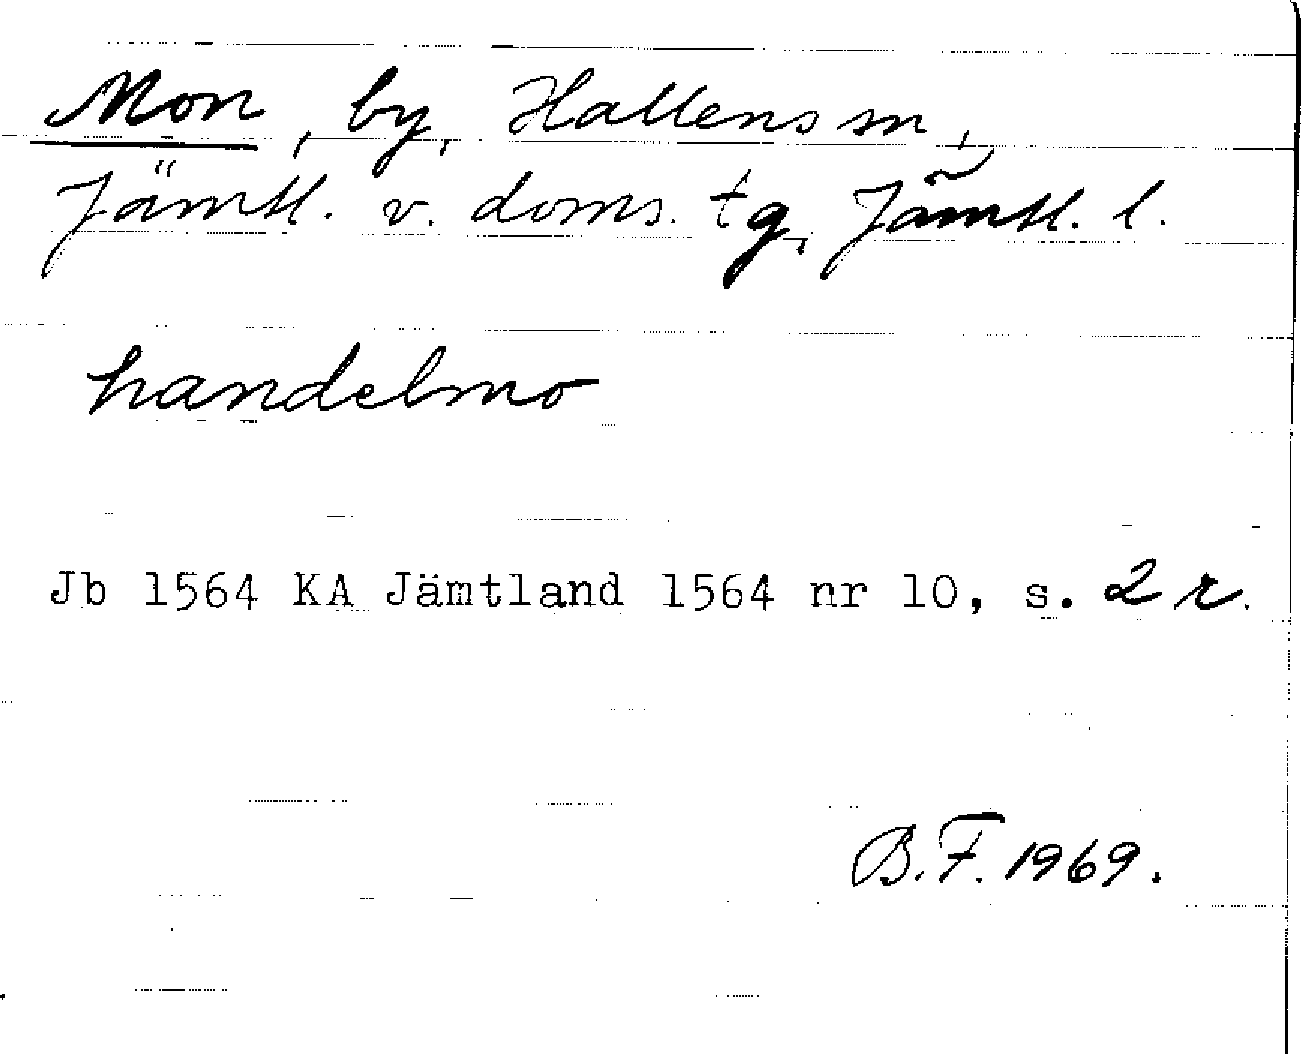 Mon, by, Hallens sn,
Jämtl. v. doms. tg, Jämtl. l.
handelmo
Jb 1564 KA Jämtland 1564 nr 10, s. 2 r.
B.F. 1969.